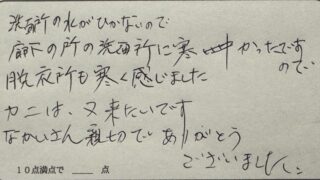 洗面所の水がひかないので
廊下の所の洗面所に寒い中かったです
ので
脱衣所も寒く感じました
カニは、又来たいです
なかいさん親切でありがとう
ございました
10点満点で ＿＿ 点